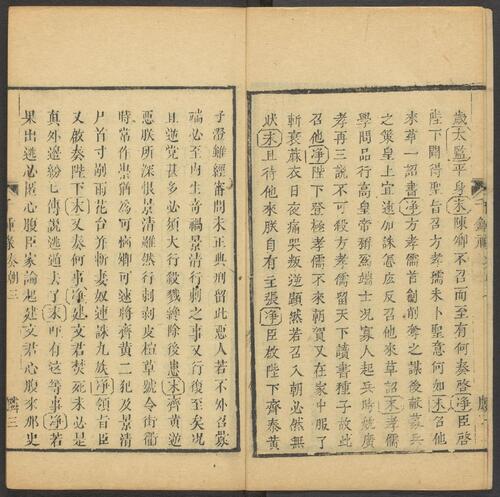 歲太監平身末陳卿不召而至有何奏啓淨臣啓
陛下聞得聖旨召方孝孺未卜聖意何如末召他
來草一詔書淨方孝孺首創削奪之謀後獻募兵
之策皇上宜速加誅怎広反召他來草詔末孝孺
學問品行高皇帝稱為端士況寡人起兵時姚廣
孝再三說不可殺方孝孺留天下讀書種子故此
召他淨陛下登極孝孺不來朝賀又在家中服了
斬衰麻衣日夜痛哭叛逆顯然若召入朝必然無
狀末且待他來朕自有主張淨臣啟陛下齊泰黃
子澄雖經審問未正典刑留此惡人若不外召蒙
端必至內生奇禍景清行刺之事又行復至矣况
且逆党甚多必須大行殺戮纔除後患末齊黃逆
惡朕所深恨景清雖然行剥皮楦草號令街衢
時常作祟猶為可惱卿可速將齊黃二犯及景清
尸首寸剮雨花台并斬妻奴連誅九族淨領旨臣
又啟奏陛下末又奏何事淨建文君焚死未必是
真外邊紛七傳說逃遁去了末吓有這等事淨若
果出逃必挺心腹臣家論起建文君心腹來那史
千鍾祿 奏朝 三